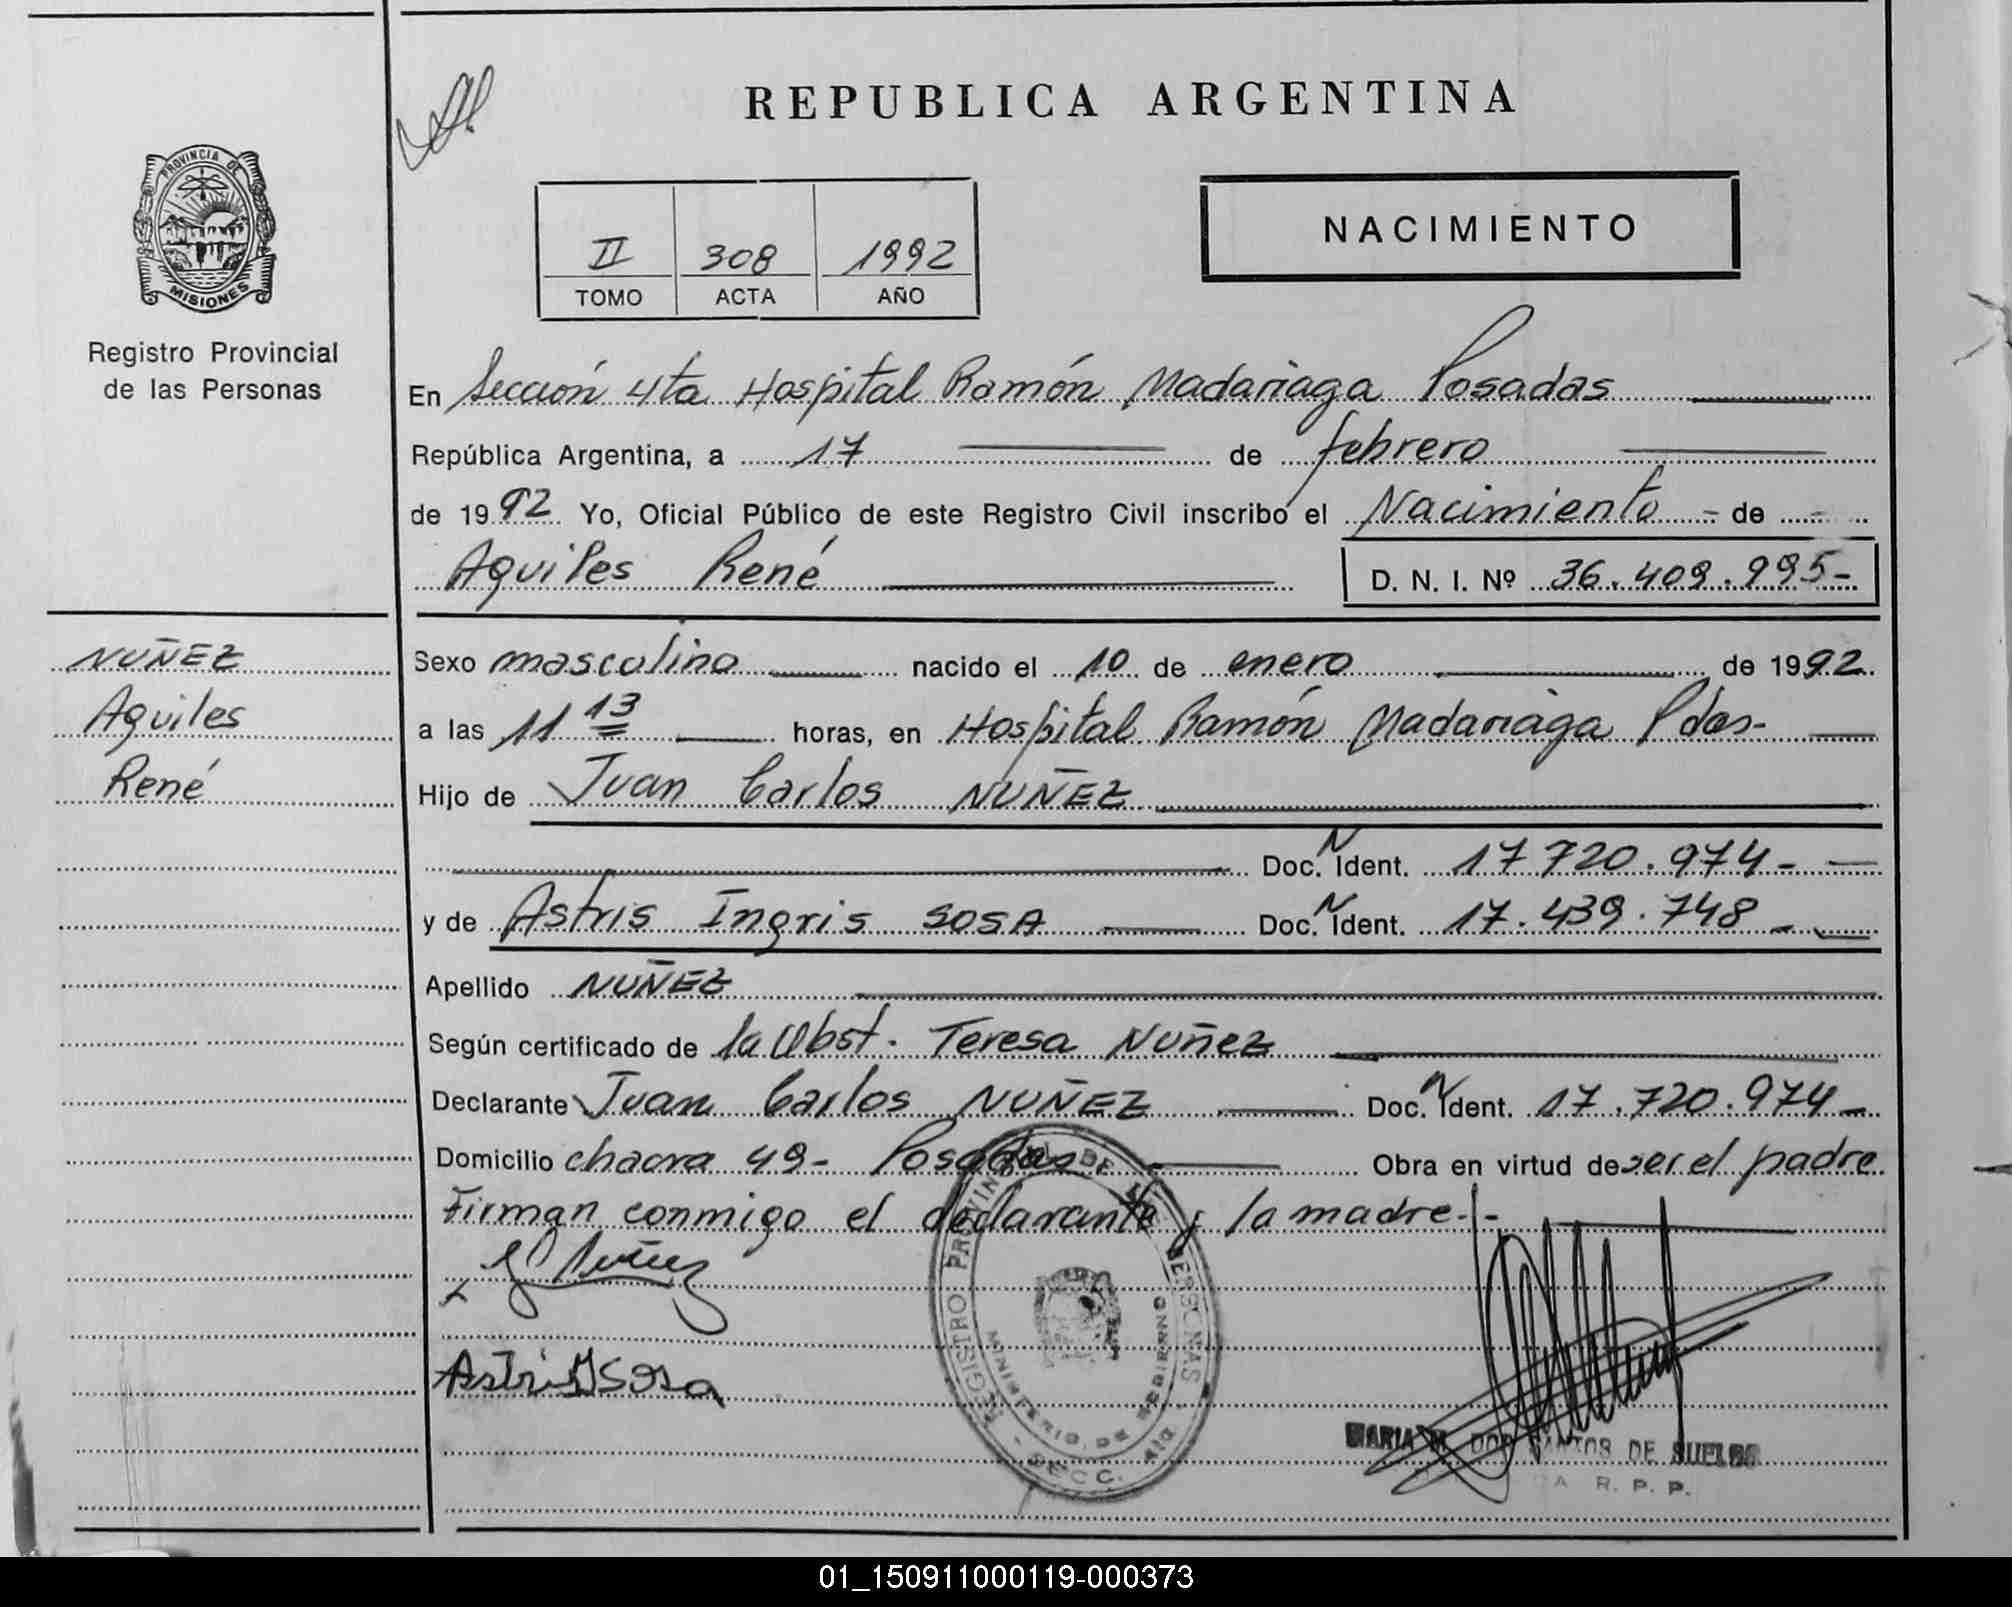 REPUBLICA ARGENTINA
PROVINCIA DE
MISIONES
Registro Provincial
de las Personas
II 308 1992
TOMO ACTA AÑO
NACIMIENTO
En Sección 4ta Hospital Ramón Madariaga Posadas
República Argentina, a 17 de febrero
de 1992 Yo, Oficial Público de este Registro Civil inscribo el Nacimiento - de -
Aquiles René D. N. I. Nº 36.409.995-
NUÑEZ
Aquiles
René
Sexo masculino nacido el 10 de enero de 1992
a las 11 13 horas, en Hospital Ramón Madariaga Pdas-
Hijo de Juan Carlos NUÑEZ
Doc. N Ident. 17 720.974-
y de Astris Ingris SOSA Doc. N Ident. 17.439.748-
Apellido NUÑEZ
Según certificado de la Obst. Teresa Nuñez
Declarante Juan Carlos NUÑEZ Doc. N Ident. 17.720.974-
Domicilio chacra 49- Posadas Obra en virtud de ser el padre
Firman conmigo el declarante y la madre.-
Nuñez
Astri Sosa
REGISTRO PROVINCIAL DE LAS PERSONAS
MINISTERIO DE GOBIERNO
SECC. 4ta
MARIA DOS SANTOS DE SUELOS
R. P. P.
01_150911000119-000373